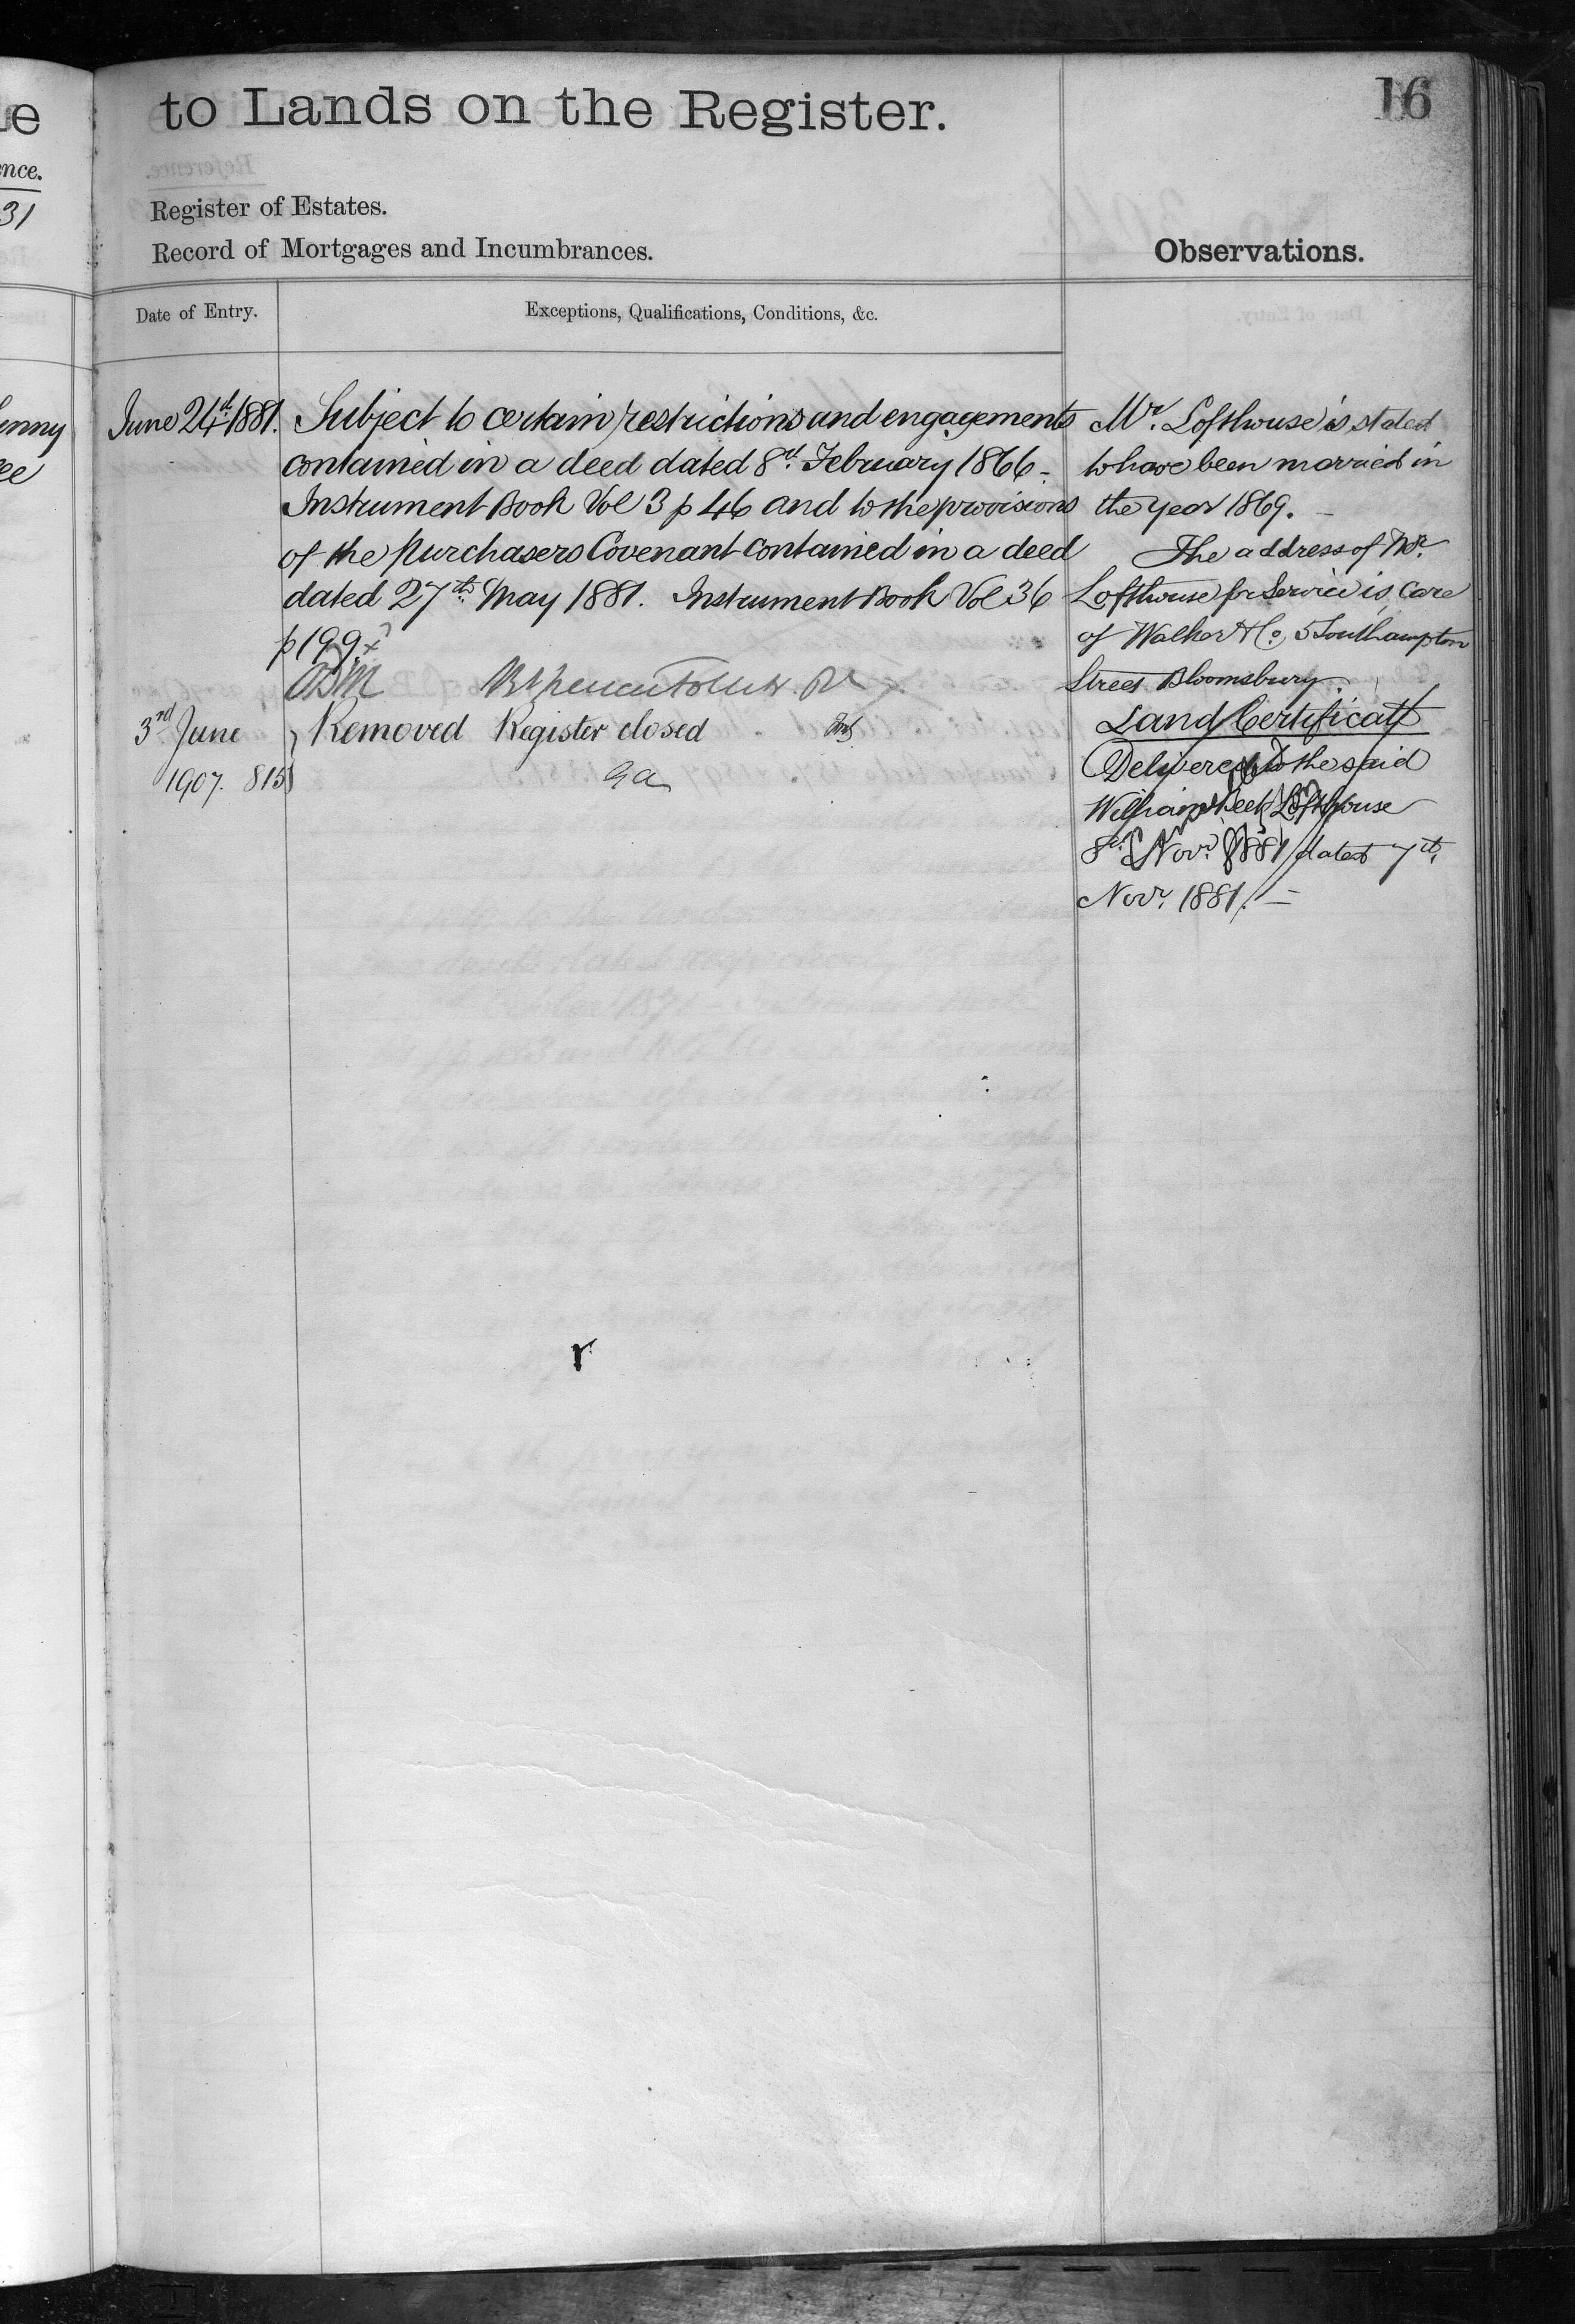 to Lands on the Register.
16
Register of Estates.
Record of Mortgages and Incumbrances.
Observations.
Date of Entry.
Exceptions, Qualifications, Conditions, &c.
June 24th 1881.
Subject to certain restrictions and engagements
contained in a deed dated 8th February 1866 -
Instrument Book Vol 3 p 46 and to the provisions
of the Purchasers Covenant contained in a deed
dated 27th May 1881. Instrument Book Vol 36
p 199 +
3rd June
1907. 815
Removed Register closed
Mr. Lofthouse is stated
to have been married in
the year 1869. -
The address of Mr.
Lofthouse for Service is, Care
of Walker & Co, 5 Southampton
Street Bloomsbury.
Land Certificate
Delivered to the said
William Peek Lofthouse
8th Novr. 1881 dated 7th
Novr. 1881. -
ence.
31
enny
ee